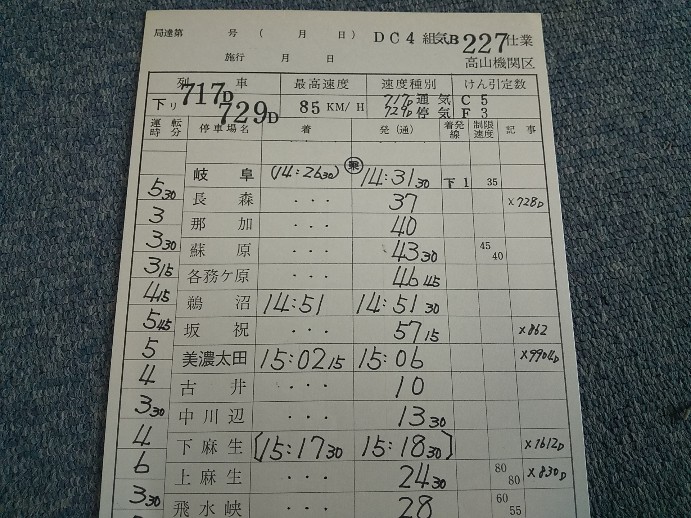 局達第 号 ( 月 日) DC4 組気B227仕業
施行 月 日 高山機関区
列車 最高速度 速度種別 けん引定数
下り 717D 729D 85 KM/H 717D 通気 C 5
729D 停気 F 3
運転時分 停車場名 着 発(通) 着発線 制限速度 記事
岐阜 (14:26 30) 乗 14:31 30 下1 35
5 30
長森 ・・・ 37 ×728D
3
那加 ・・・ 40
3 30
蘇原 ・・・ 43 30 45 40
3 15
各務ケ原 ・・・ 46 45
4 15
鵜沼 14:51 14:51 30
5 45
坂祝 ・・・ 57 15 ×862
5
美濃太田 15:02 15 15:06 ×9904D
4
古井 ・・・ 10
3 30
中川辺 ・・・ 13 30
4
下麻生 [15:17 30 15:18 30] ×1612D
6
上麻生 ・・・ 24 30 80 80 ×830D
3 30
飛水峡 ・・・ 28 60 55